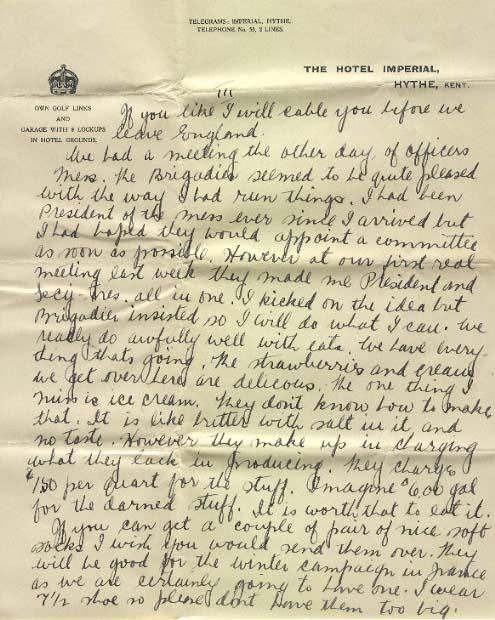 TELEGRAMS: IMPERIAL, HYTHE.
TELEPHONE No. 53, 2 LINES.
THE HOTEL IMPERIAL,
HYTHE, KENT.
OWN GOLF LINKS
AND
GARAGE WITH 8 LOCKUPS
IN HOTEL GROUNDS.
III
If you like I will cable you before we
leave England.
We had a meeting the other day of officers
mess. The Brigadier seemed to be quite pleased
with the way I had run things. I had been
President of the mess ever since I arrived but
I had hoped they would appoint a committee
as soon as possible. However at our first real
meeting last week they made me President and
Secy-Tres. all in one. I kicked on the idea but
Brigadier insisted so I will do what I can. We
really do awfully well with eats. We have every-
thing thats going. The strawberries and cream
we get over here are delicous. The one thing I
miss is ice cream. They dont know how to make
that. It is like butter with salt in it and
no taste. However they make up in charging
what they lack in producing. They charge
$1.50 per quart for the stuff. Imagine $6.00 gal
for the darned stuff. It is worth that to eat it.
If you can get a couple of pair of nice soft
socks I wish you would send them over. They
will be good for the winter campaign in France
as we are certainly going to have one. I wear
7½ shoe so please dont have them too big.